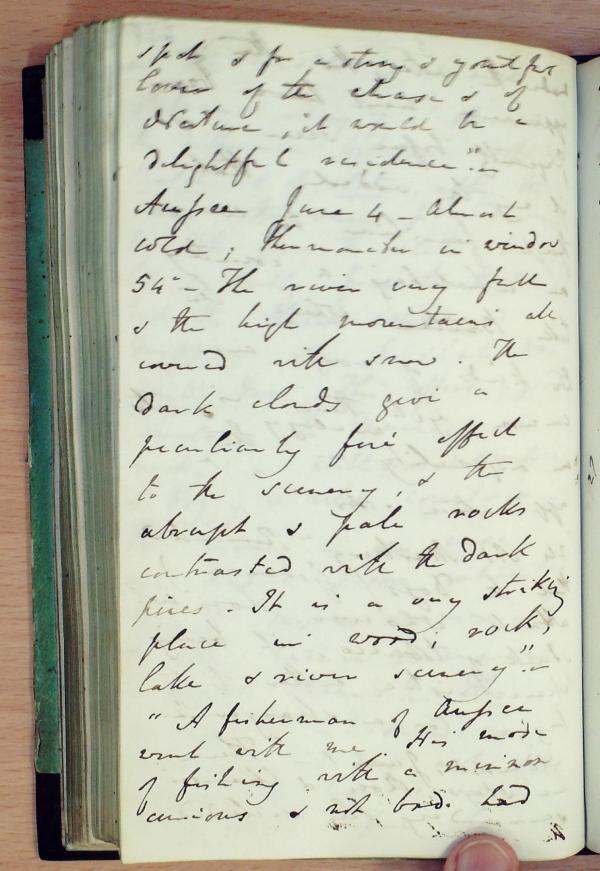 spot & for a strong & youthful
lover of the chase & of
Nature, it would be a
delightful residence".
Aussee June 4 – Almost
cold; thermometer in window
54° – The river very full
& the high mountains all
covered with snow. The
dark clouds give a
peculiarly fine effect
to the scenery, & the
abrupt & pale rocks
contrasted with the dark
pines. It is a very striking
place in wood, rock,
lake & river scenery".
" A fisherman of Aussee
went with me. His mode
of fishing with a minnow
curious & not bad. Had